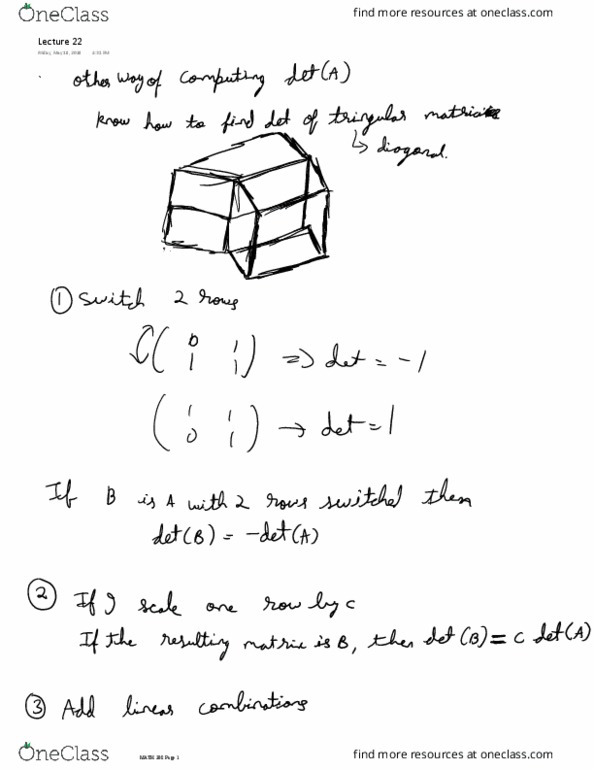 OneClass
find more resources at oneclass.com
Lecture 22
other way of computing det(A)
know how to find det of tringular matrices
↳ diagonal.
① Switch 2 rows
( 0 1
1 1 ) => det = -1
( 1 1
0 1 ) → det = 1
If B is A with 2 rows switched then
det(B) = -det(A)
② If I scale one row by c
If the resulting matrix is B, then det(B) = c det(A)
③ Add linear combinations
OneClass
Page 1
find more resources at oneclass.com